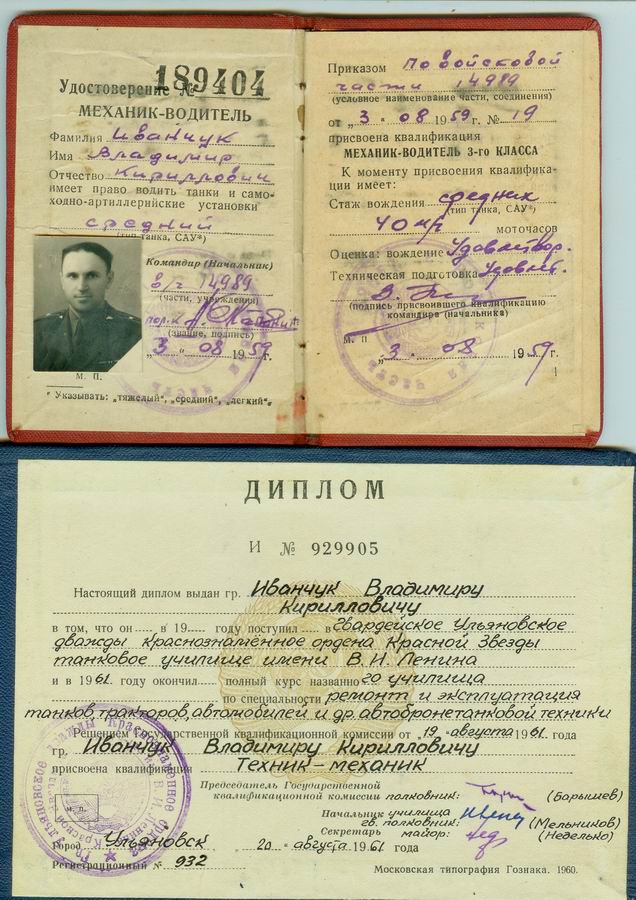 Удостоверение № 189404
МЕХАНИК-ВОДИТЕЛЬ
Фамилия Иванчук
Имя Владимир
Отчество Кириллович
имеет право водить танки и само-
ходно-артиллерийские установки
средний
(тип танка, САУ*)
Командир (Начальник)
в/ч 14989
(части, учреждения)
(звание, подпись)
„3" 08 1959 г.
М. П.
* Указывать: „тяжелый", „средний", „легкий".
Приказом по войсковой
части 14989
(условное наименование части, соединения)
от „3" 08 1959 г. № 19
присвоена квалификация
МЕХАНИК-ВОДИТЕЛЬ 3-го КЛАССА
К моменту присвоения квалифика-
ции имеет:
Стаж вождения средник
(тип танка, САУ*)
40 моточасов
Оценка: вождение Удовлетвор.
Техническая подготовка Удовлет.
(подпись присвоившего квалификацию
командира (начальника)
М. П.
„3" 08 1959 г.
ДИПЛОМ
И № 929905
Настоящий диплом выдан гр. Иванчук Владимиру
Кирилловичу
в том, что он в 19 году поступил в Гвардейское Ульяновское
дважды краснознамённое ордена Красной Звезды
танковое училище имени В.И. Ленина
и в 1961 году окончил полный курс названного училища
по специальности ремонт и эксплуатация
танков, тракторов, автомобилей и др. автобронетанковой техники
Решением Государственной квалификационной комиссии от „19" августа 1961 года
гр. Иванчук Владимиру Кирилловичу
присвоена квалификация Техник-механик
Председатель Государственной
квалификационной комиссии полковник: (Барышев)
Начальник училища
гв. полковник: (Мельников)
Секретарь майор: (Неделько)
М. П.
Город Ульяновск „20" августа 1961 года
Регистрационный № 932
Московская типография Гознака. 1960.